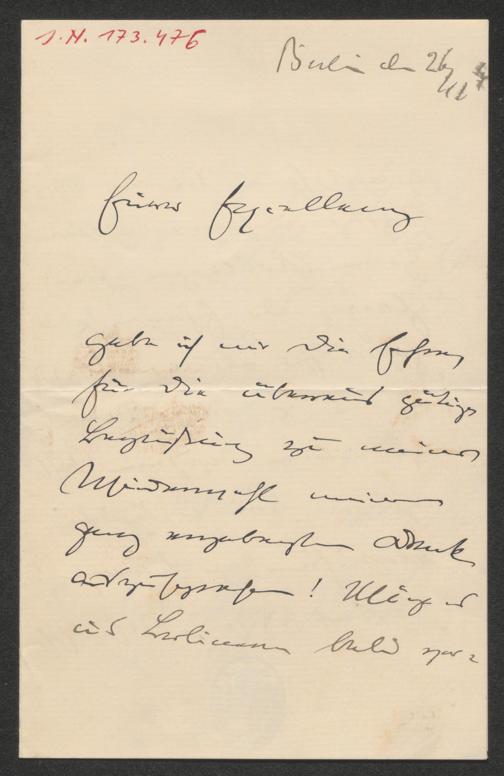 I.N. 173.476
Berlin den 26
Euerer Excellenz
gebe ich mir die Ehre,
für die überaus gütige
Beglückung zu meiner
Wiederwahl meinen
ganz ergebensten Dank
auszusprechen! Mög es
uns Berlinern bald